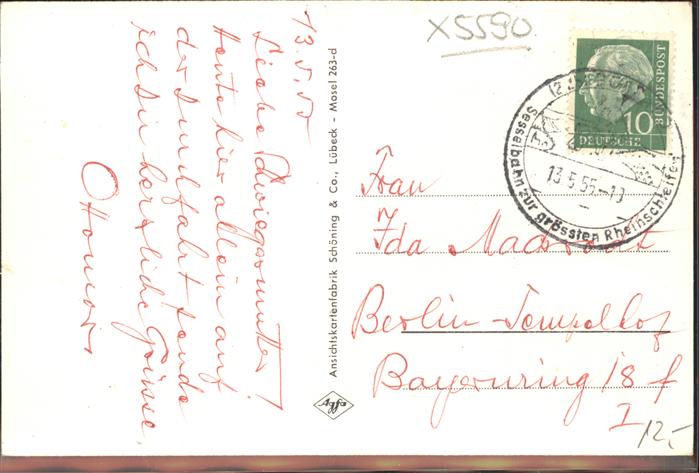 X5590
13.5.55
Liebe Schwiegermutter!
Heute hier allein auf
der Durchfahrt sende
ich Dir herzliche Grüsse.
Ansichtskartenfabrik Schöning & Co., Lübeck - Mosel 263-d
Agfa
10
DEUTSCHE
BUNDESPOST
13.5.55-19
Sesselbahn zur grössten Rheinschleife
Frau
Ida
Berlin-Tempelhof
Bayernring 18 f
I
12,-